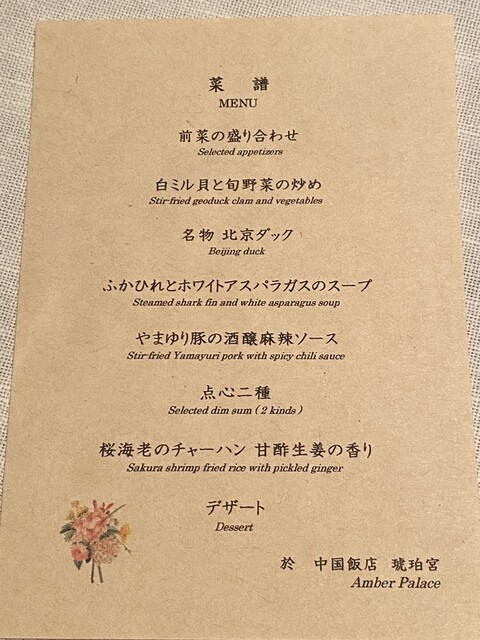 菜 譜
MENU
前菜の盛り合わせ
Selected appetizers
白ミル貝と旬野菜の炒め
Stir-fried geoduck clam and vegetables
名物 北京ダック
Beijing duck
ふかひれとホワイトアスパラガスのスープ
Steamed shark fin and white asparagus soup
やまゆり豚の酒醸麻辣ソース
Stir-fried Yamayuri pork with spicy chili sauce
点心二種
Selected dim sum ( 2 kinds )
桜海老のチャーハン 甘酢生姜の香り
Sakura shrimp fried rice with pickled ginger
デザート
Dessert
於 中国飯店 琥珀宮
Amber Palace